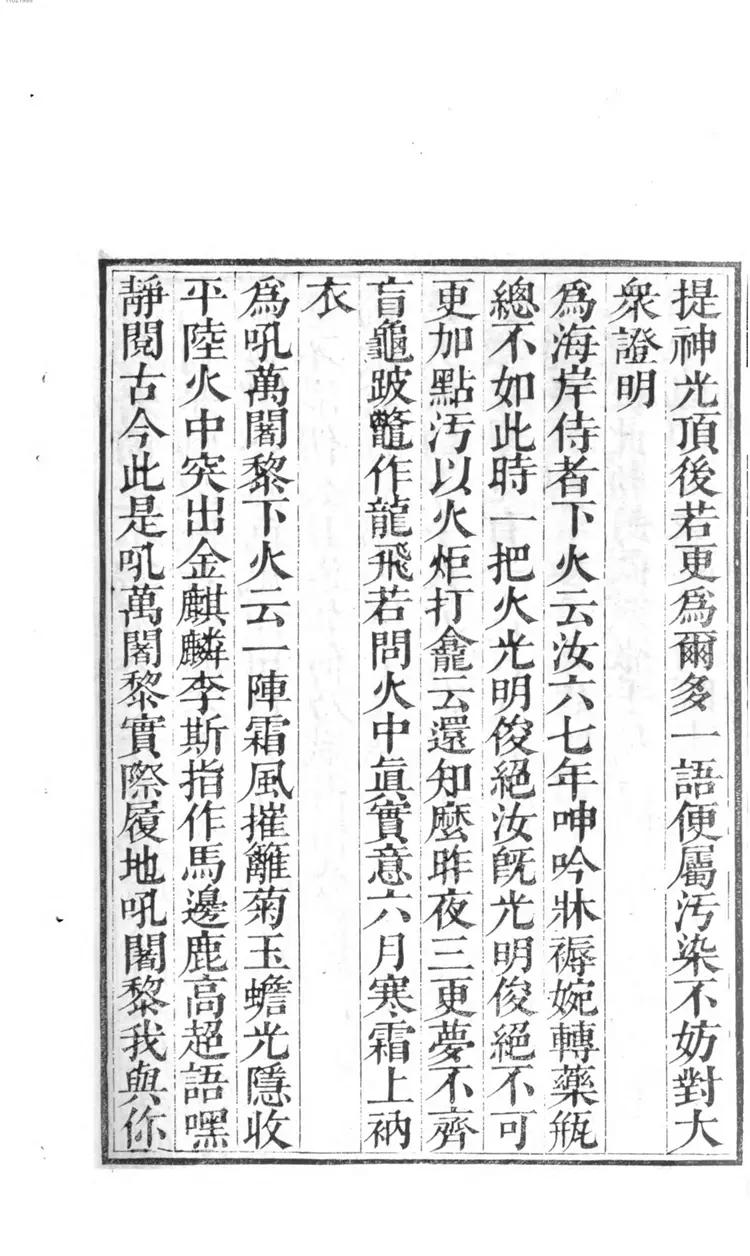 提神光頂後若更爲爾多一語便屬汚染不妨對大
衆證明
爲海岸侍者下火云汝六七年呻吟牀褥婉轉藥瓶
總不如此時一把火光明俊絕汝旣光明俊絕不可
更加點汚以火炬打龕云還知麽昨夜三更夢不齊
盲龜跛鼈作龍飛若問火中眞實意六月寒霜上衲
衣
爲吼萬闍黎下火云一陣霜風摧籬菊玉蟾光隱收
平陸火中突出金麒麟李斯指作馬邊鹿高超語嘿
靜閱古今此是吼萬闍黎實際履地吼闍黎我與你